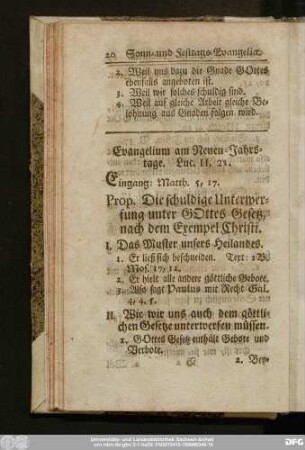 20 Sonn- und Festtags-Evangeliæ.
2. Weil uns dazu die Gnade GOttes
ebenfalls angeboten ist.
3. Weil wir solches schuldig sind.
4. Weil auf gleiche Arbeit gleiche Be-
lohnung aus Gnaden folgen wird.
Evangelium am Neuen-Jahrs-
tage. Luc. II, 21.
Eingang: Matth. 5, 17.
Prop. Die schuldige Unterwer-
fung unter GOttes Gesetz,
nach dem Exempel Christi.
I. Das Muster unsers Heilandes.
1. Er ließ sich beschneiden. Text: 1 B.
Mos. 17, 12.
2. Er hielt alle andere göttliche Gebote.
3. Also sagt Paulus mit Recht Gal.
4, 4. 5.
II. Wie wir uns auch dem göttli-
chen Gesetze unterwerfen müssen.
1. GOttes Gesetz enthält Gebote und
Verbote.
2. Bey-
Universitäts- und Landesbibliothek Sachsen-Anhalt